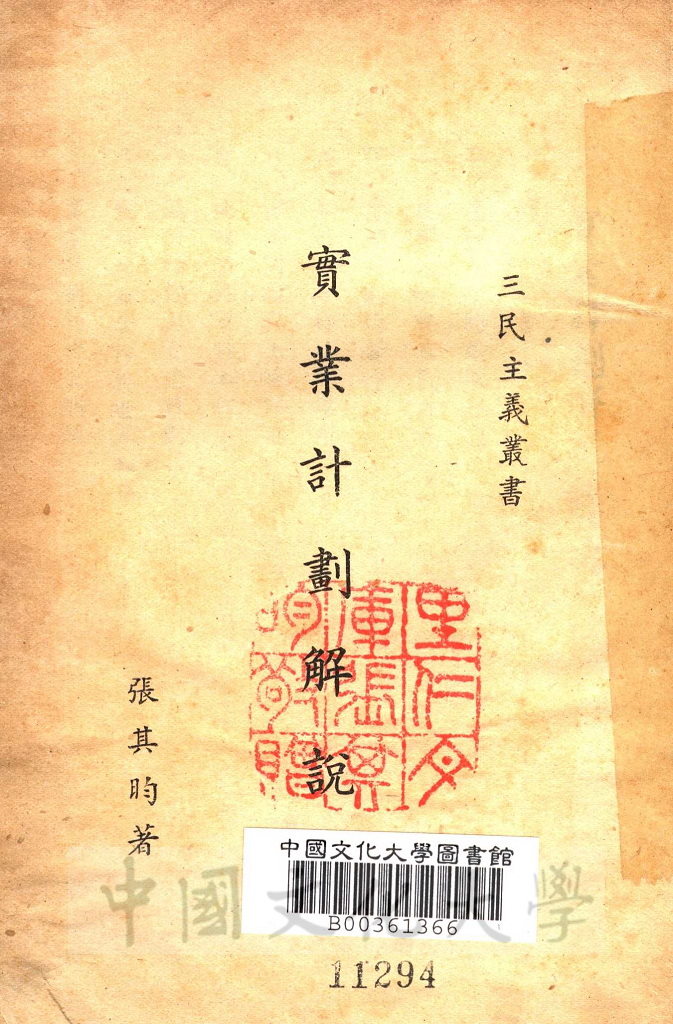 三民主義叢書
實業計劃解說
張其昀著
里仁文
庫張其
昀敬贈
中國文化大學圖書館
B00361366
中國文化大學
11294